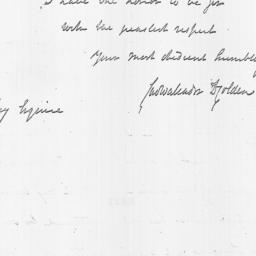 I have the honor to be Sir
with the greatest respect
Your most obedient humble
Cadwalader Golden
Esquire